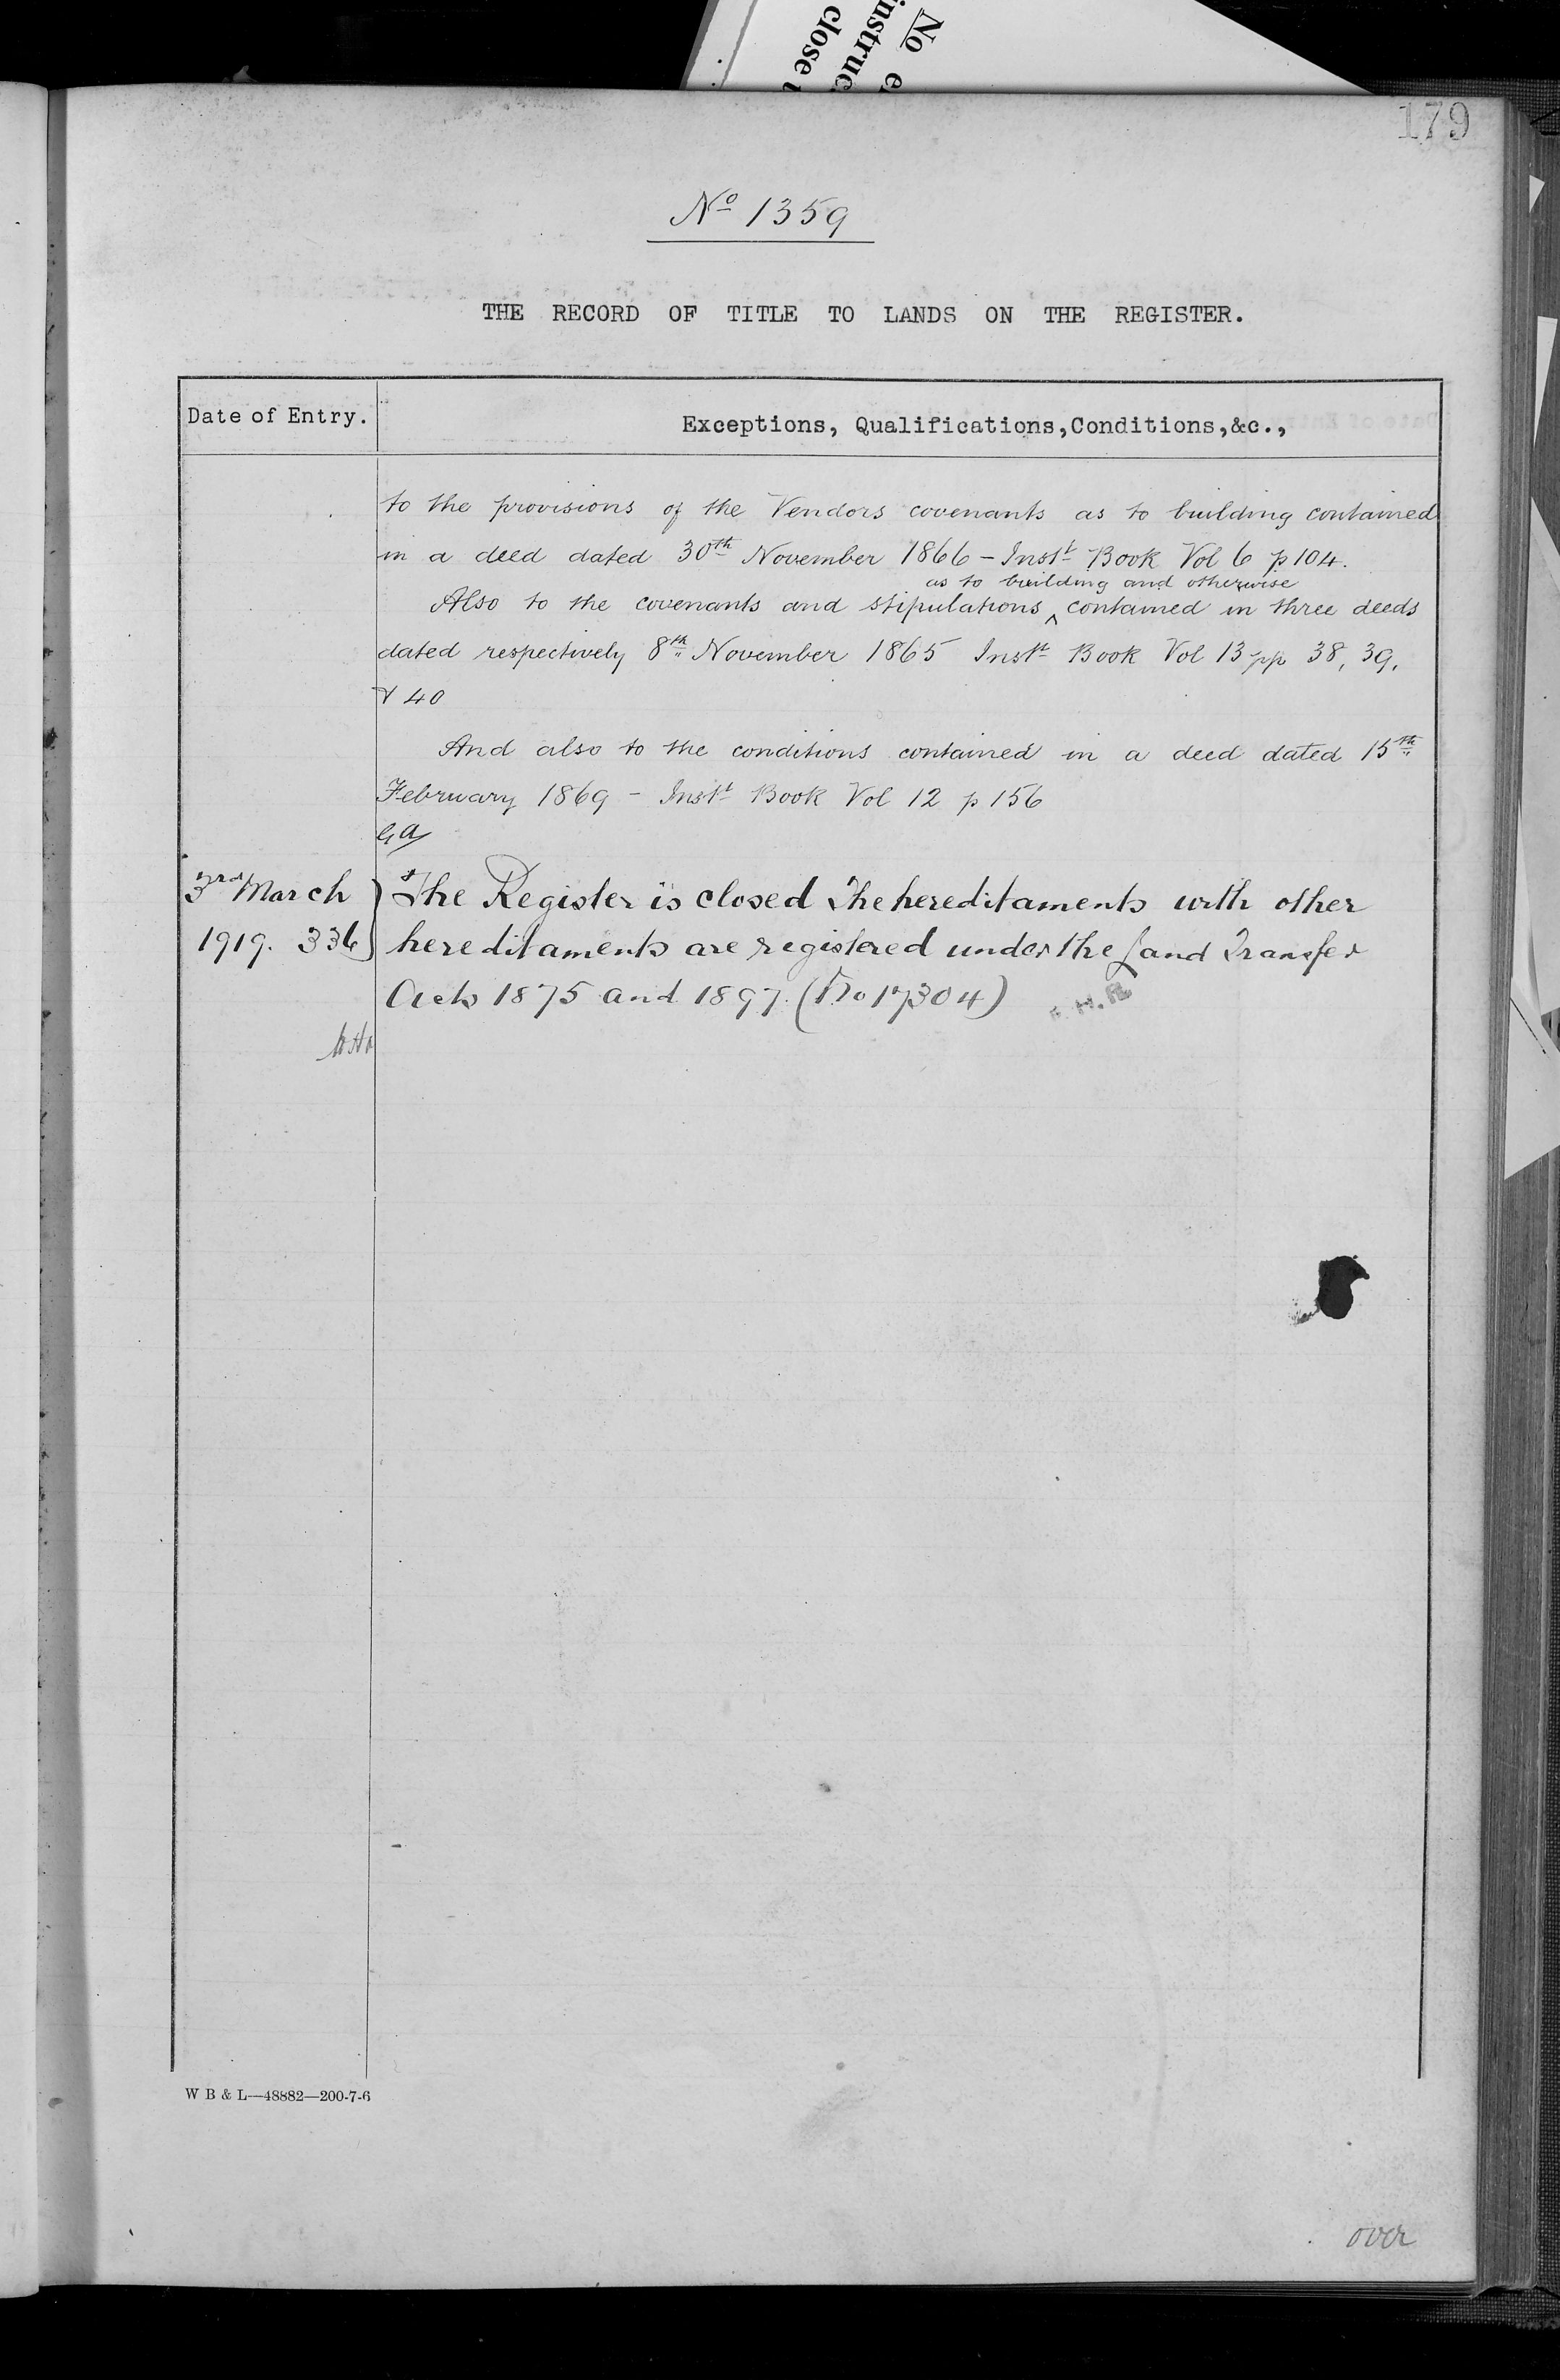 No
instruc
close
179
No 1359
THE RECORD OF TITLE TO LANDS ON THE REGISTER.
Date of Entry.
Exceptions, Qualifications, Conditions, &c.,
to the provisions of the Vendors covenants as to building contained
in a deed dated 30th November 1866 - Inst Book Vol 6 p 104.
as to building and otherwise
Also to the covenants and stipulations ^ contained in three deeds
dated respectively 8th November 1865 Inst Book Vol 13 pp 38, 39,
& 40
And also to the conditions contained in a deed dated 15th
February 1869 - Inst Book Vol 12 p 156
3rd March The Register is closed The hereditaments with other
1919. 336 hereditaments are registered under the Land Transfer
Acts 1875 and 1897. (No 17304)
W B & L—48882—200-7-6
over